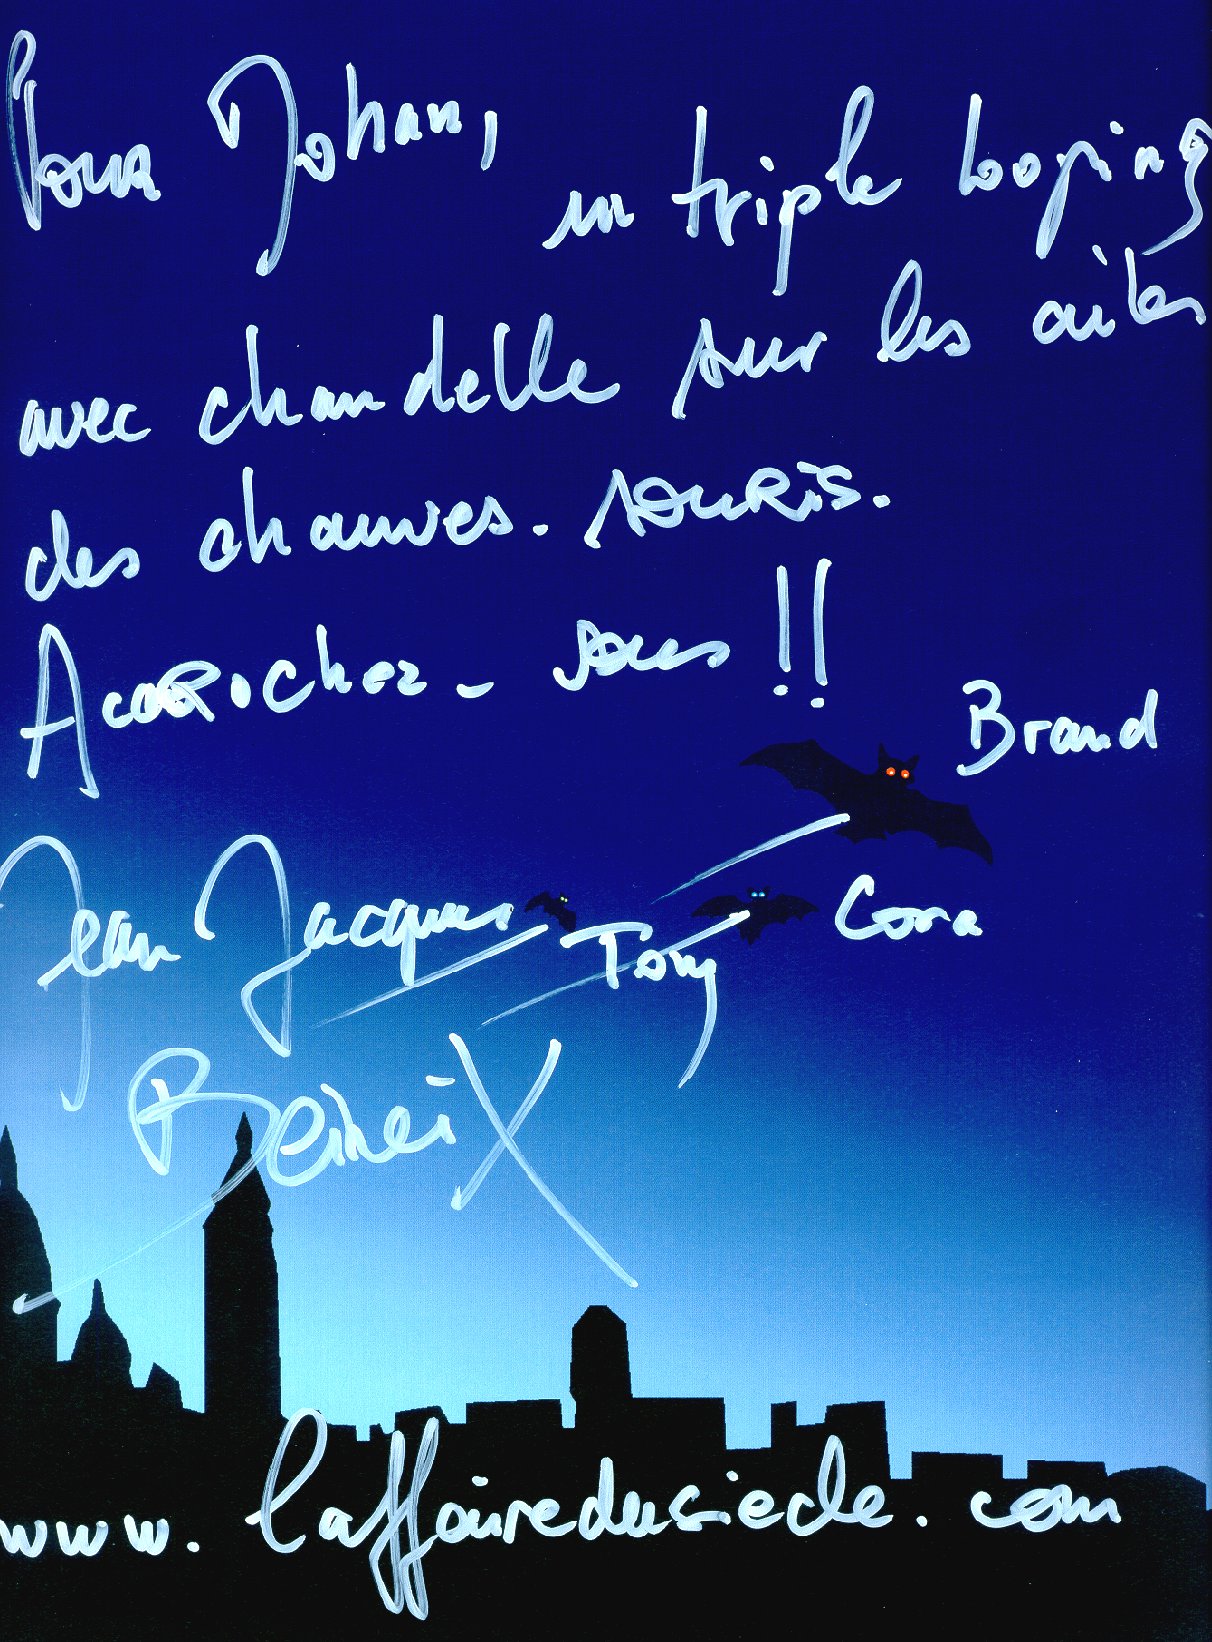 Pour Johan, un triple looping
avec chandelle sur les ailes
des chauves-souris.
Accrochez-vous !!
Brand
Cora
Tony
Jean Jacques
Beineix
www.laffairedusiecle.com